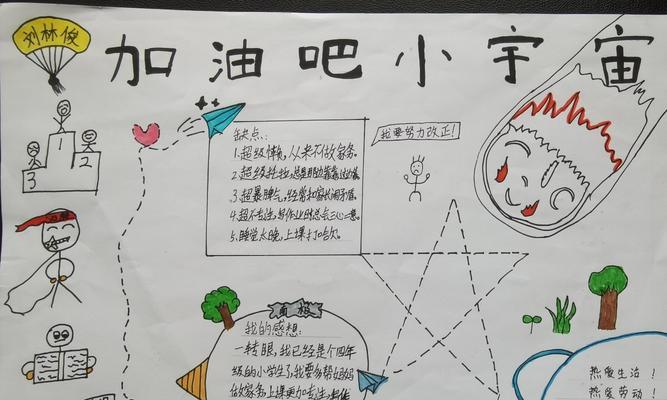 刘林俊
加油吧小宇宙
1
2
3
缺点:
1.超级懒,从来不做家务。
2.超级拉拉,总是
3.超暴脾气,经常和家长闹矛盾。
4.超不专注,写作业时总会三心二意。
5.睡觉太晚,上课打哈欠。
我要努力改正!
感想
我的感想:
一转眼,我已经是个四年
级的小学生了,我要多帮妈妈
做家务上课更加专注,
热爱生活!
热爱劳动!